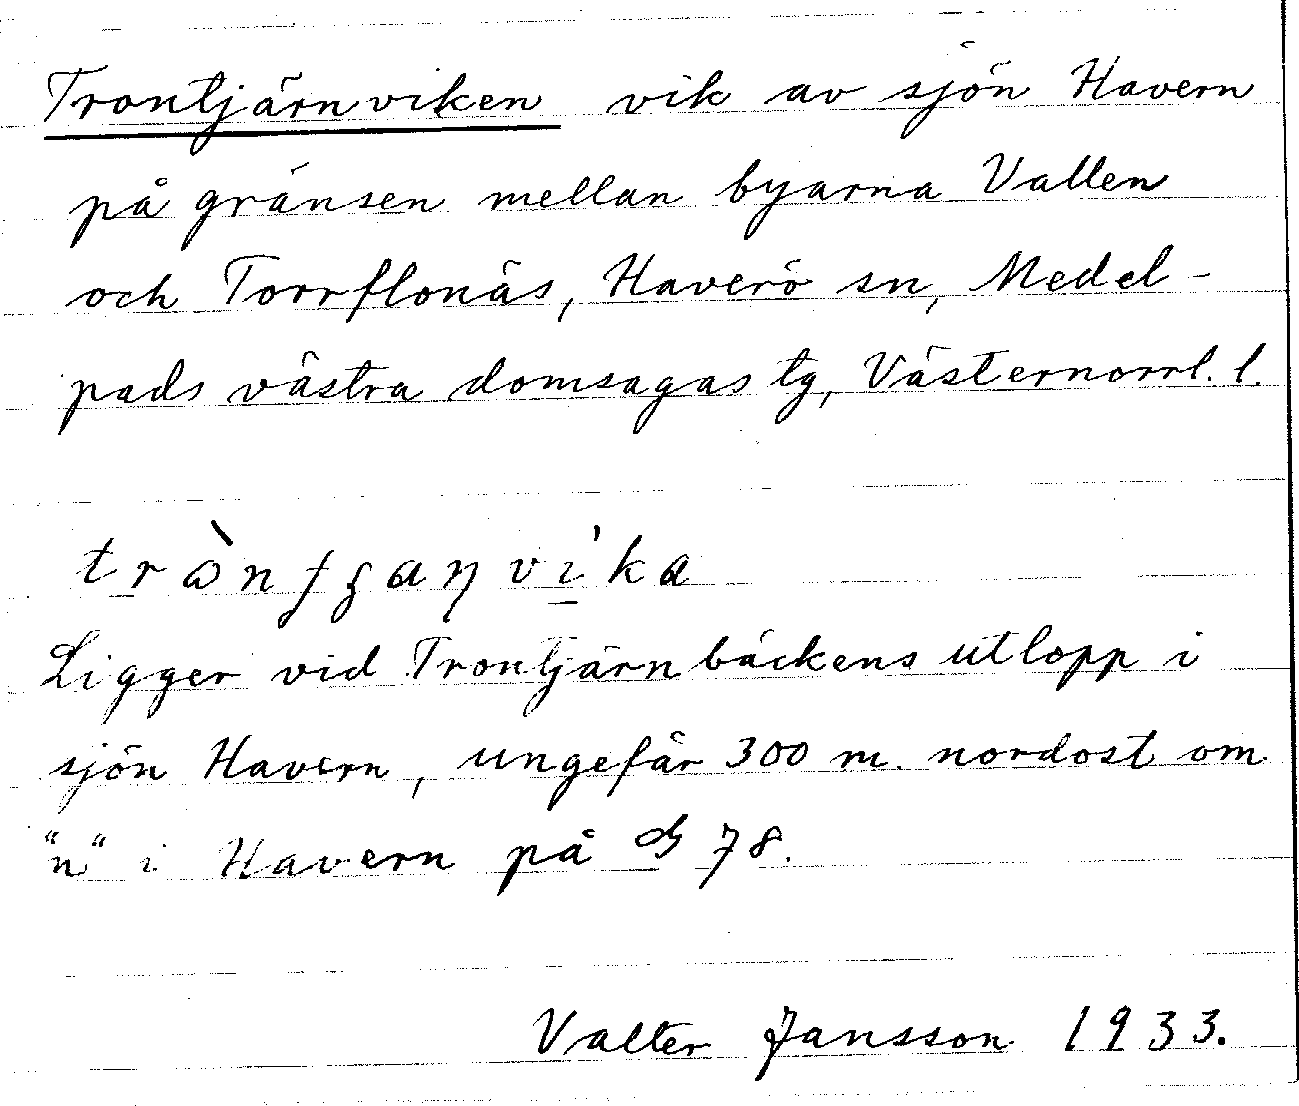 Trontjärnviken vik av sjön Havern
på gränsen mellan byarna Vallen
och Torrflonäs, Haverö sn, Medel-
pads västra domsagas tg, Västernorrl. l.
Ligger vid Trontjärnbäckens utlopp i
sjön Havern, ungefär 300 m. nordost om
"n" i Havern på G 78.
Valter Jansson 1933.